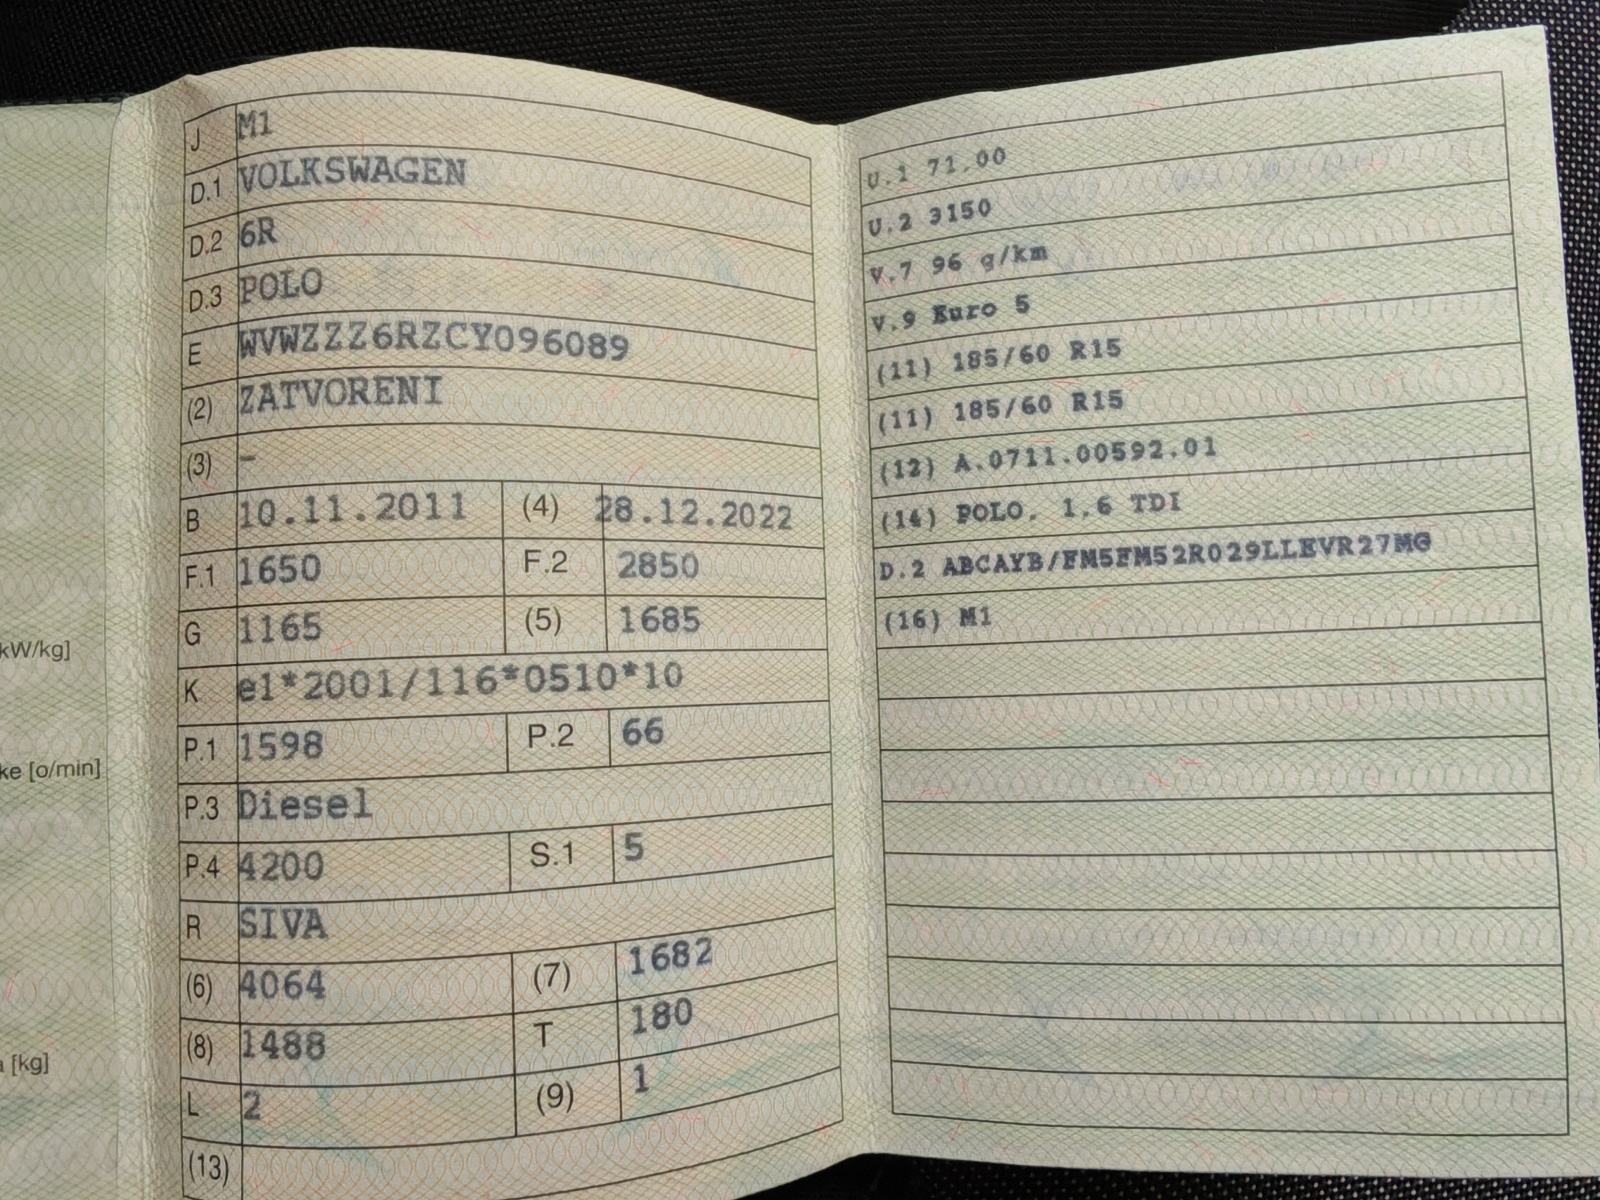 kW/kg]
ke [o/min]
[kg]
J M1
D.1 VOLKSWAGEN
D.2 6R
D.3 POLO
E WVWZZZ6RZCY096089
(2) ZATVORENI
(3) -
B 10.11.2011 (4) 28.12.2022
F.1 1650 F.2 2850
G 1165 (5) 1685
K e1*2001/116*0510*10
P.1 1598 P.2 66
P.3 Diesel
P.4 4200 S.1 5
R SIVA
(6) 4064 (7) 1682
(8) 1488 T 180
L 2 (9) 1
(13)
U.1 71,00
U.2 3150
V.7 96 g/km
V.9 Euro 5
(11) 185/60 R15
(11) 185/60 R15
(12) A.0711.00592.01
(14) POLO, 1,6 TDI
D.2 ABCAYB/FM5FM52R029LLEVR27MG
(16) M1